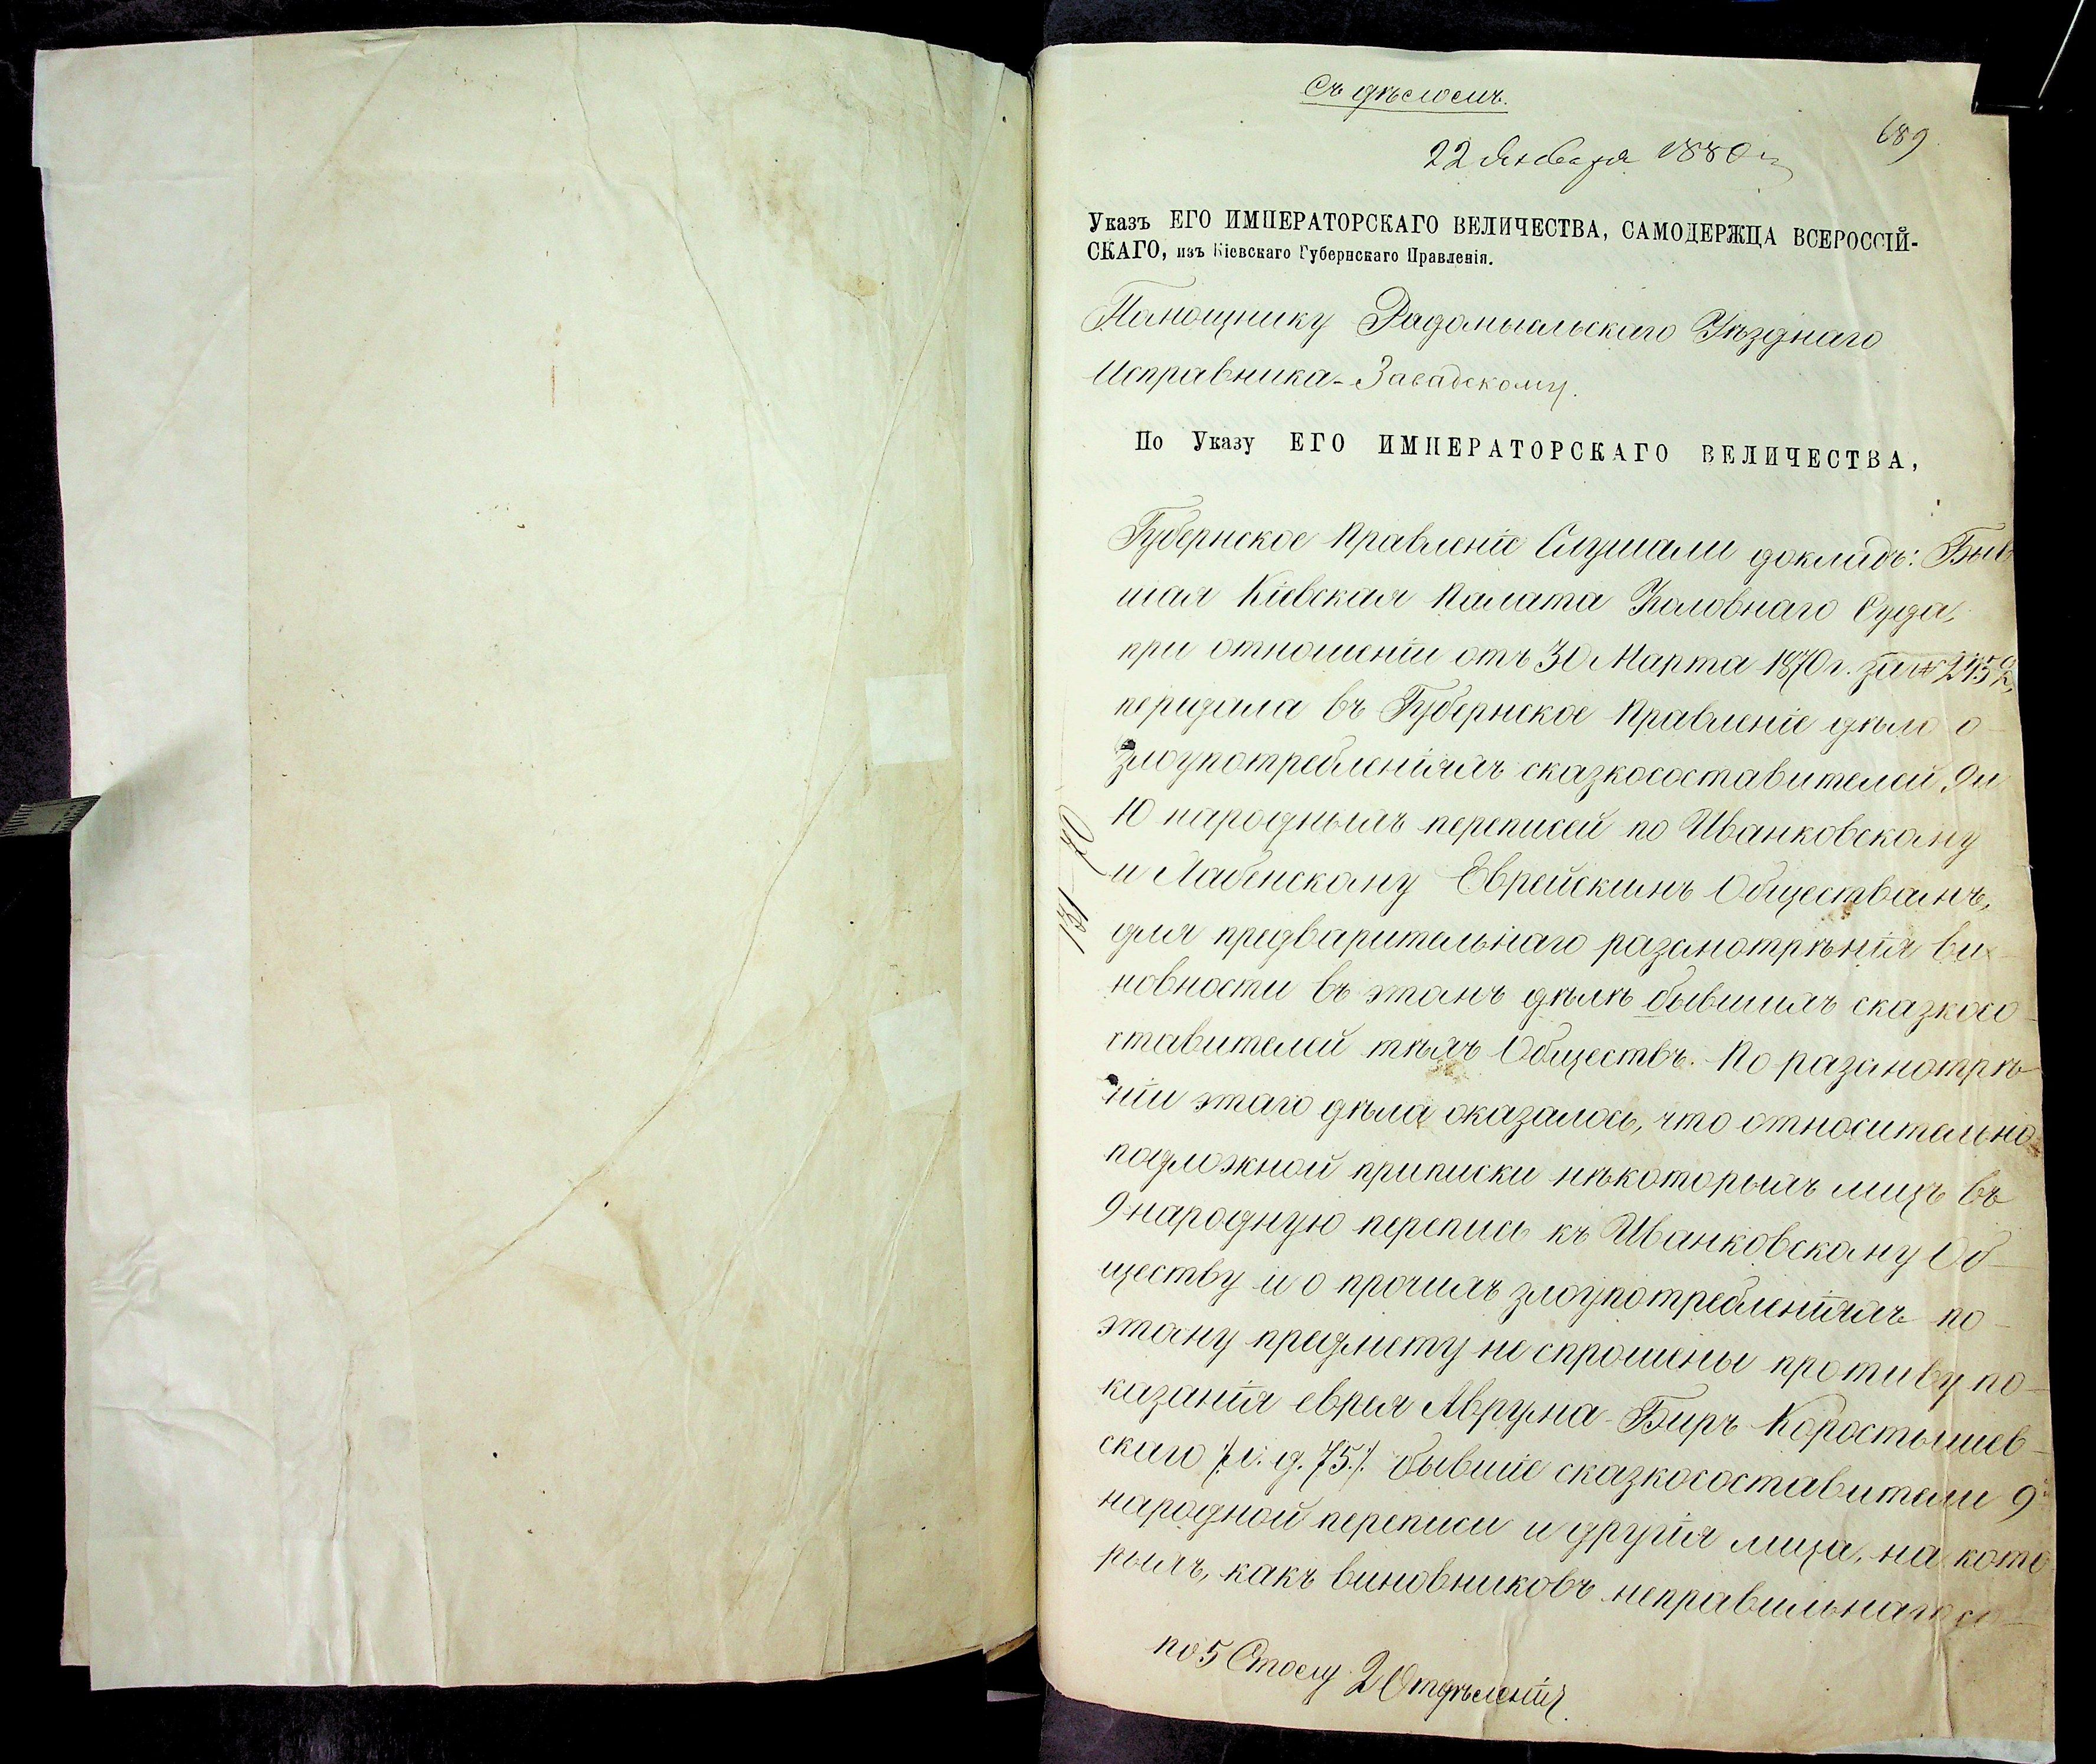 Съ дѣломъ.
689
22 Января 1880 г
Указъ ЕГО ИМПЕРАТОРСКАГО ВЕЛИЧЕСТВА, САМОДЕРЖЦА ВСЕРОССІЙ-
СКАГО, изъ Кіевскаго Губернскаго Правленія.
Помощнику Радомысльскаго Уѣзднаго
Исправника - Завадскому.
По Указу ЕГО ИМПЕРАТОРСКАГО ВЕЛИЧЕСТВА,
Губернское Правленіе Слушали докладъ: Быв
шая Кіевская Палата Уголовнаго Суда,
при отношеніи отъ 30 Марта 1870 г. за №
передала въ Губернское Правленіе дѣло о
злоупотребленіяхъ сказкосоставителей 9 и
10 народныхъ переписей по Иванковскому
и Еврейскимъ Обществамъ,
для предварительнаго разсмотрѣнія ви-
новности въ этомъ дѣлѣ бывшихъ сказкосо-
ставителей тѣхъ Обществъ. По разсмотрѣ-
ніи этаго дѣла оказалось, что относительно
подложной приписки нѣкоторыхъ лицъ въ
9 народную перепись къ Иванковскому Об-
ществу и о прочихъ злоупотребленіяхъ по
этому предмету не спрошены противу по-
казанія еврея Аврума-Беръ Коростышев-
скаго /:л. д. 75:/ бывшіе сказкосоставители 9й
народной переписи и другія лица, на кото
рыхъ, какъ виновниковъ неправильнаго со-
по 5 Столу 2 Отдѣленія.